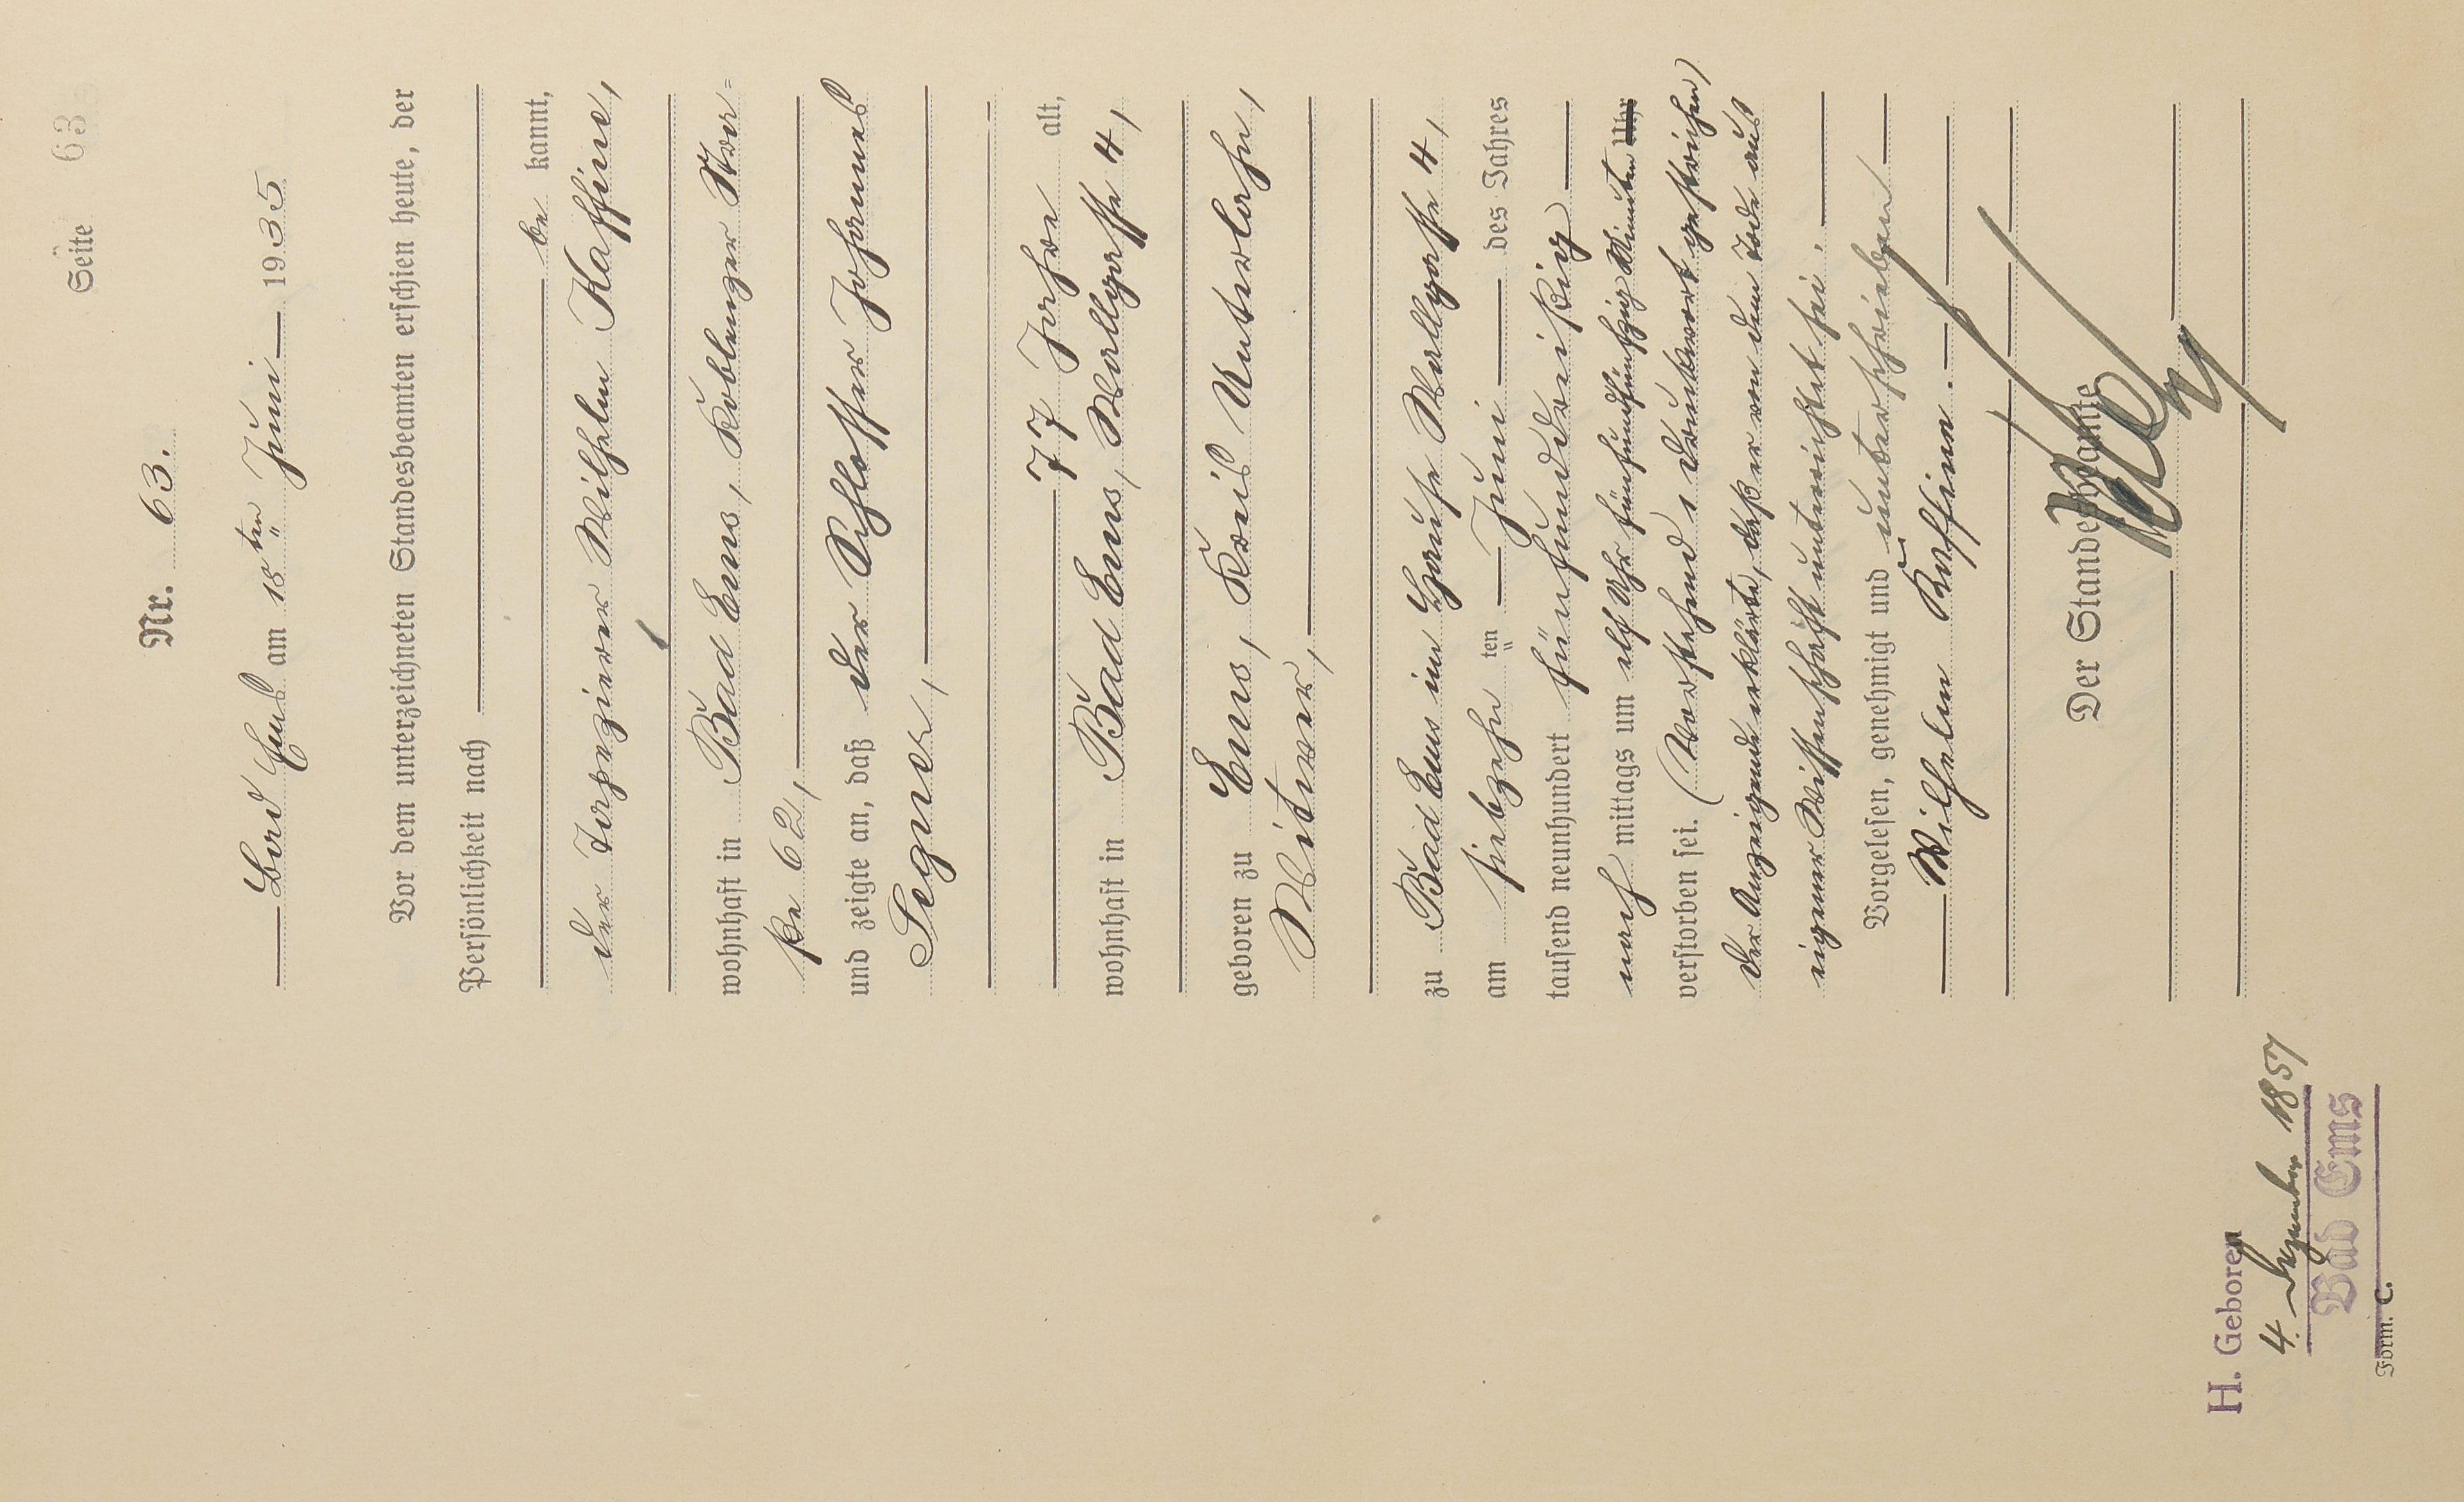 Seite 63
Nr. 63.
Bad Ems am 18ten Juni 1935
Vor dem unterzeichneten Standesbeamten erschien heute, der
Persönlichkeit nach
be kannt,
der Tapezierer Wilhelm Kaffine,
wohnhaft in Bad Ems, Koblenzer Stra=
ße 62,
und zeigte an, daß der Schlosser Johannes
Segner,
77 Jahre alt,
wohnhaft in Bad Ems, Wallgasse 4,
geboren zu Ems, Kreis Unterlahn,
Witwer,
zu Bad Ems im Hause Wallgasse 4,
am siebzehn ten Juni des Jahres
tausend neunhundert fünfunddreißig
nach mittags um elf Uhr fünfundfünfzig Minuten Uhr
verstorben sei. (Vorstehend 1 Druckwort gestrichen)
Der Anzeigende erklärte, daß er von dem Tode aus
eigener Wissenschaft unterrichtet sei.
Vorgelesen, genehmigt und unterschrieben
Wilhelm Kaffine.
Der Standesbeamte
H. Geboren
4. Dezember 1857
Bad Ems
Form. C.